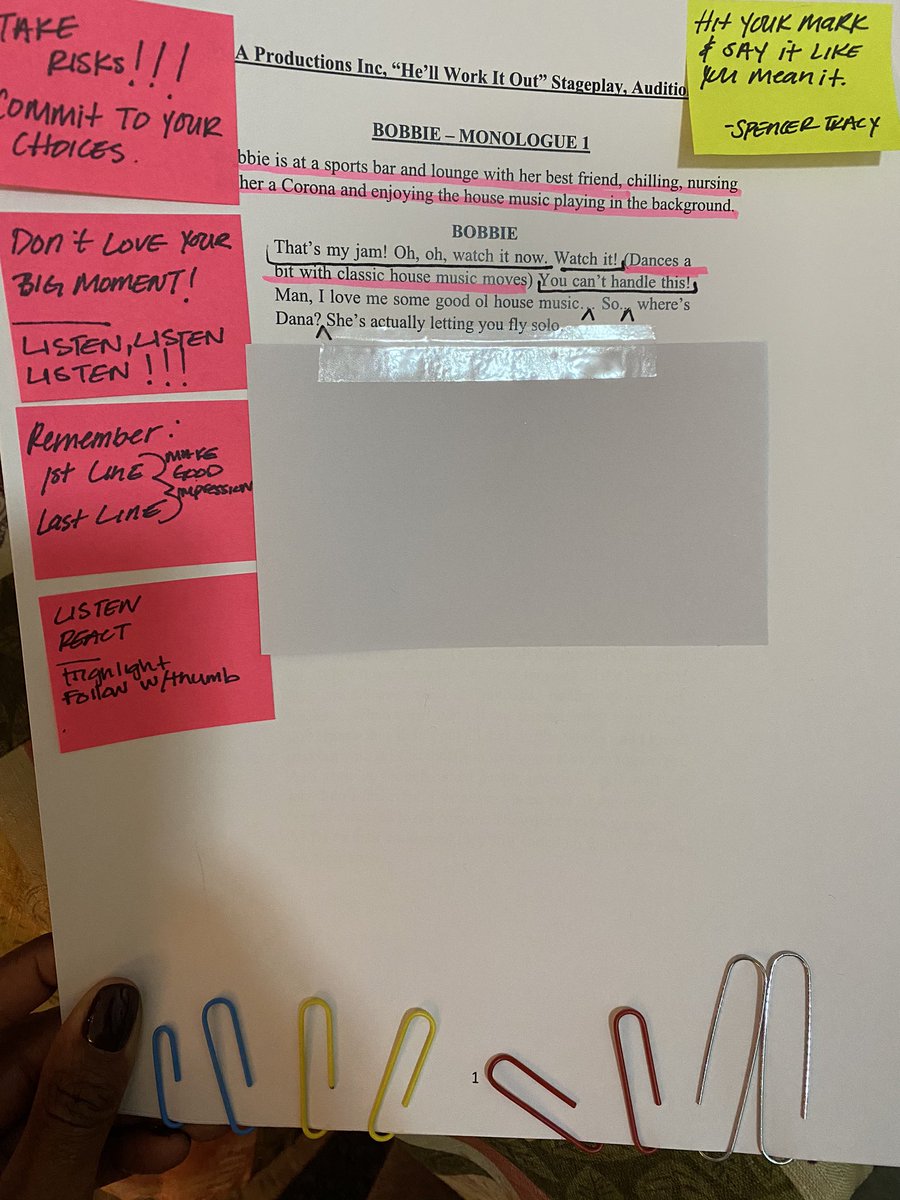 TAKE
RISKS!!!
COMMIT TO YOUR
CHOICES.
DON'T LOVE YOUR
BIG MOMENT!
LISTEN, LISTEN
LISTEN!!!
Remember:
1st LINE
Last LINE
MAKE
GOOD
IMPRESSION
LISTEN
REACT
Highlight
Follow w/thumb
HIT YOUR MARK
& SAY IT LIKE
YOU MEAN IT.
-SPENCER TRACY
A Productions Inc, "He'll Work It Out" Stageplay, Auditio
BOBBIE – MONOLOGUE 1
bbie is at a sports bar and lounge with her best friend, chilling, nursing
her a Corona and enjoying the house music playing in the background.
BOBBIE
That's my jam! Oh, oh, watch it now. Watch it! (Dances a
bit with classic house music moves) You can't handle this!
Man, I love me some good ol house music... So... where's
Dana? She's actually letting you fly solo
1